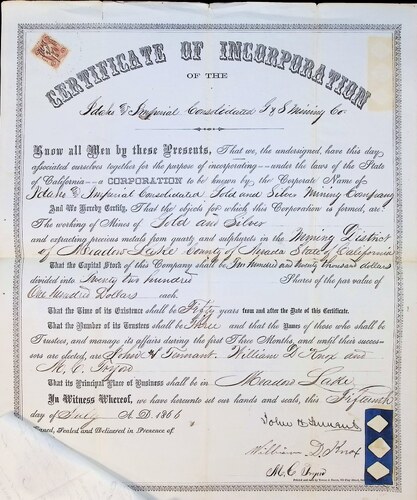 CERTIFICATE OF INCORPORATION
OF THE
Idaho & Imperial Consolidated G & S Mining Co
Know all Men by these Presents, That we, the undersigned, have this day
associated ourselves together for the purpose of incorporating—under the laws of the State
of California—a CORPORATION to be known by the Corporate Name of
Idaho & Imperial Consolidated Gold and Silver Mining Company
And We Hereby Certify, That the objects for which this Corporation is formed, are:
The working of Mines of Gold and Silver
and extracting precious metals from quartz and sulphurets in the Mining District
of Meadow Lake County of Nevada State of California
That the Capital Stock of this Company shall be Two Hundred and twenty thousand dollars
divided into Twenty two hundred Shares of the par value of
One Hundred Dollars each.
That the Time of its Existence shall be Fifty years from and after the Date of this Certificate.
That the Number of its Trustees shall be Three and that the Names of those who shall be
Trustees, and manage its affairs during the first Three Months, and until their succes-
sors are elected, are John Tennant. William D. Knox and
M. C.
That its Principal Place of Business shall be in Meadow Lake
In Witness Whereof, we have hereunto set our hands and seals, this Fifteenth
day of July A.D. 1866
Signed, Sealed and Delivered in Presence of
John Tennant
William D. Knox
M. C.